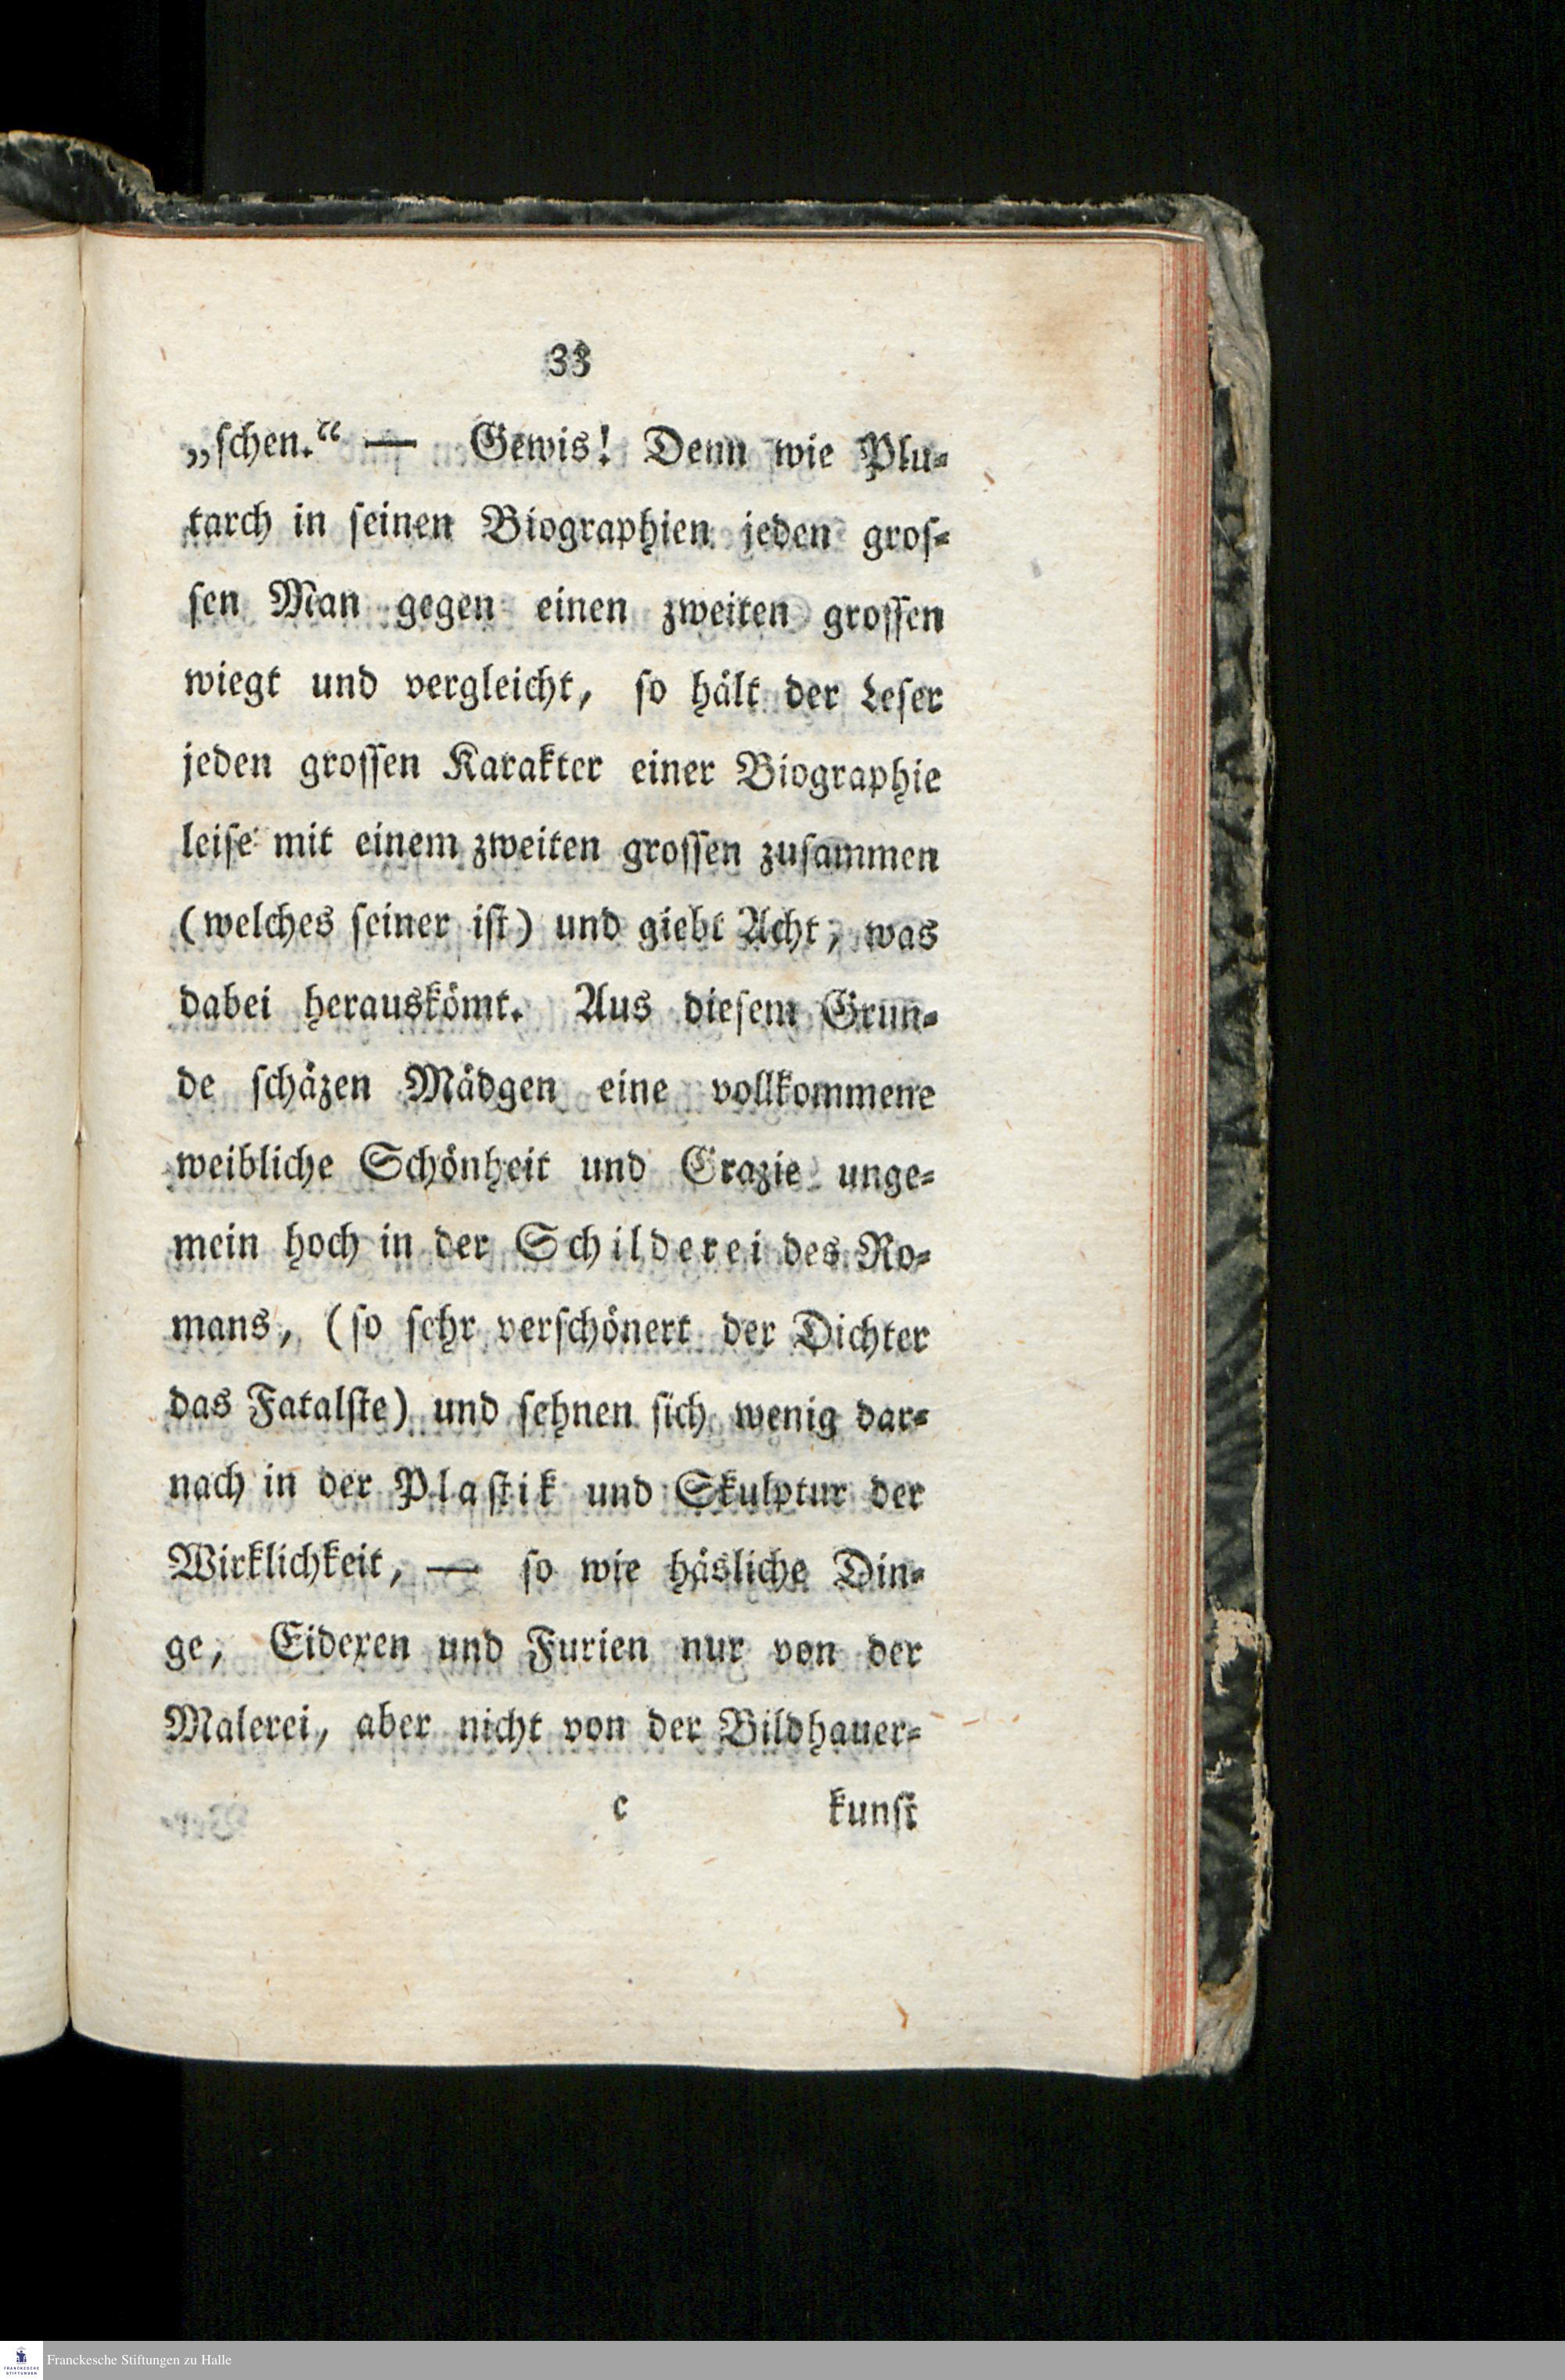 33
„ſchen.“ — Gewis! Denn wie Plu-
tarch in ſeinen Biographien jeden groſ-
ſen Man gegen einen zweiten groſſen
wiegt und vergleicht, ſo hält der Leſer
jeden groſſen Karakter einer Biographie
leiſe mit einem zweiten groſſen zuſammen
(welches ſeiner iſt) und giebt Acht, was
dabei herauskömt. Aus dieſem Grun-
de ſchäzen Mädgen eine vollkommene
weibliche Schönheit und Grazie unge-
mein hoch in der Schilderei des Ro-
mans, (ſo ſehr verſchönert der Dichter
das Fatalſte) und ſehnen ſich wenig dar-
nach in der Plaſtik und Skulptur der
Wirklichkeit, — ſo wie häsliche Din-
ge, Eidexen und Furien nur von der
Malerei, aber nicht von der Bildhauer-
c kunſt
FRANCKESCHE STIFTUNGEN Franckesche Stiftungen zu Halle